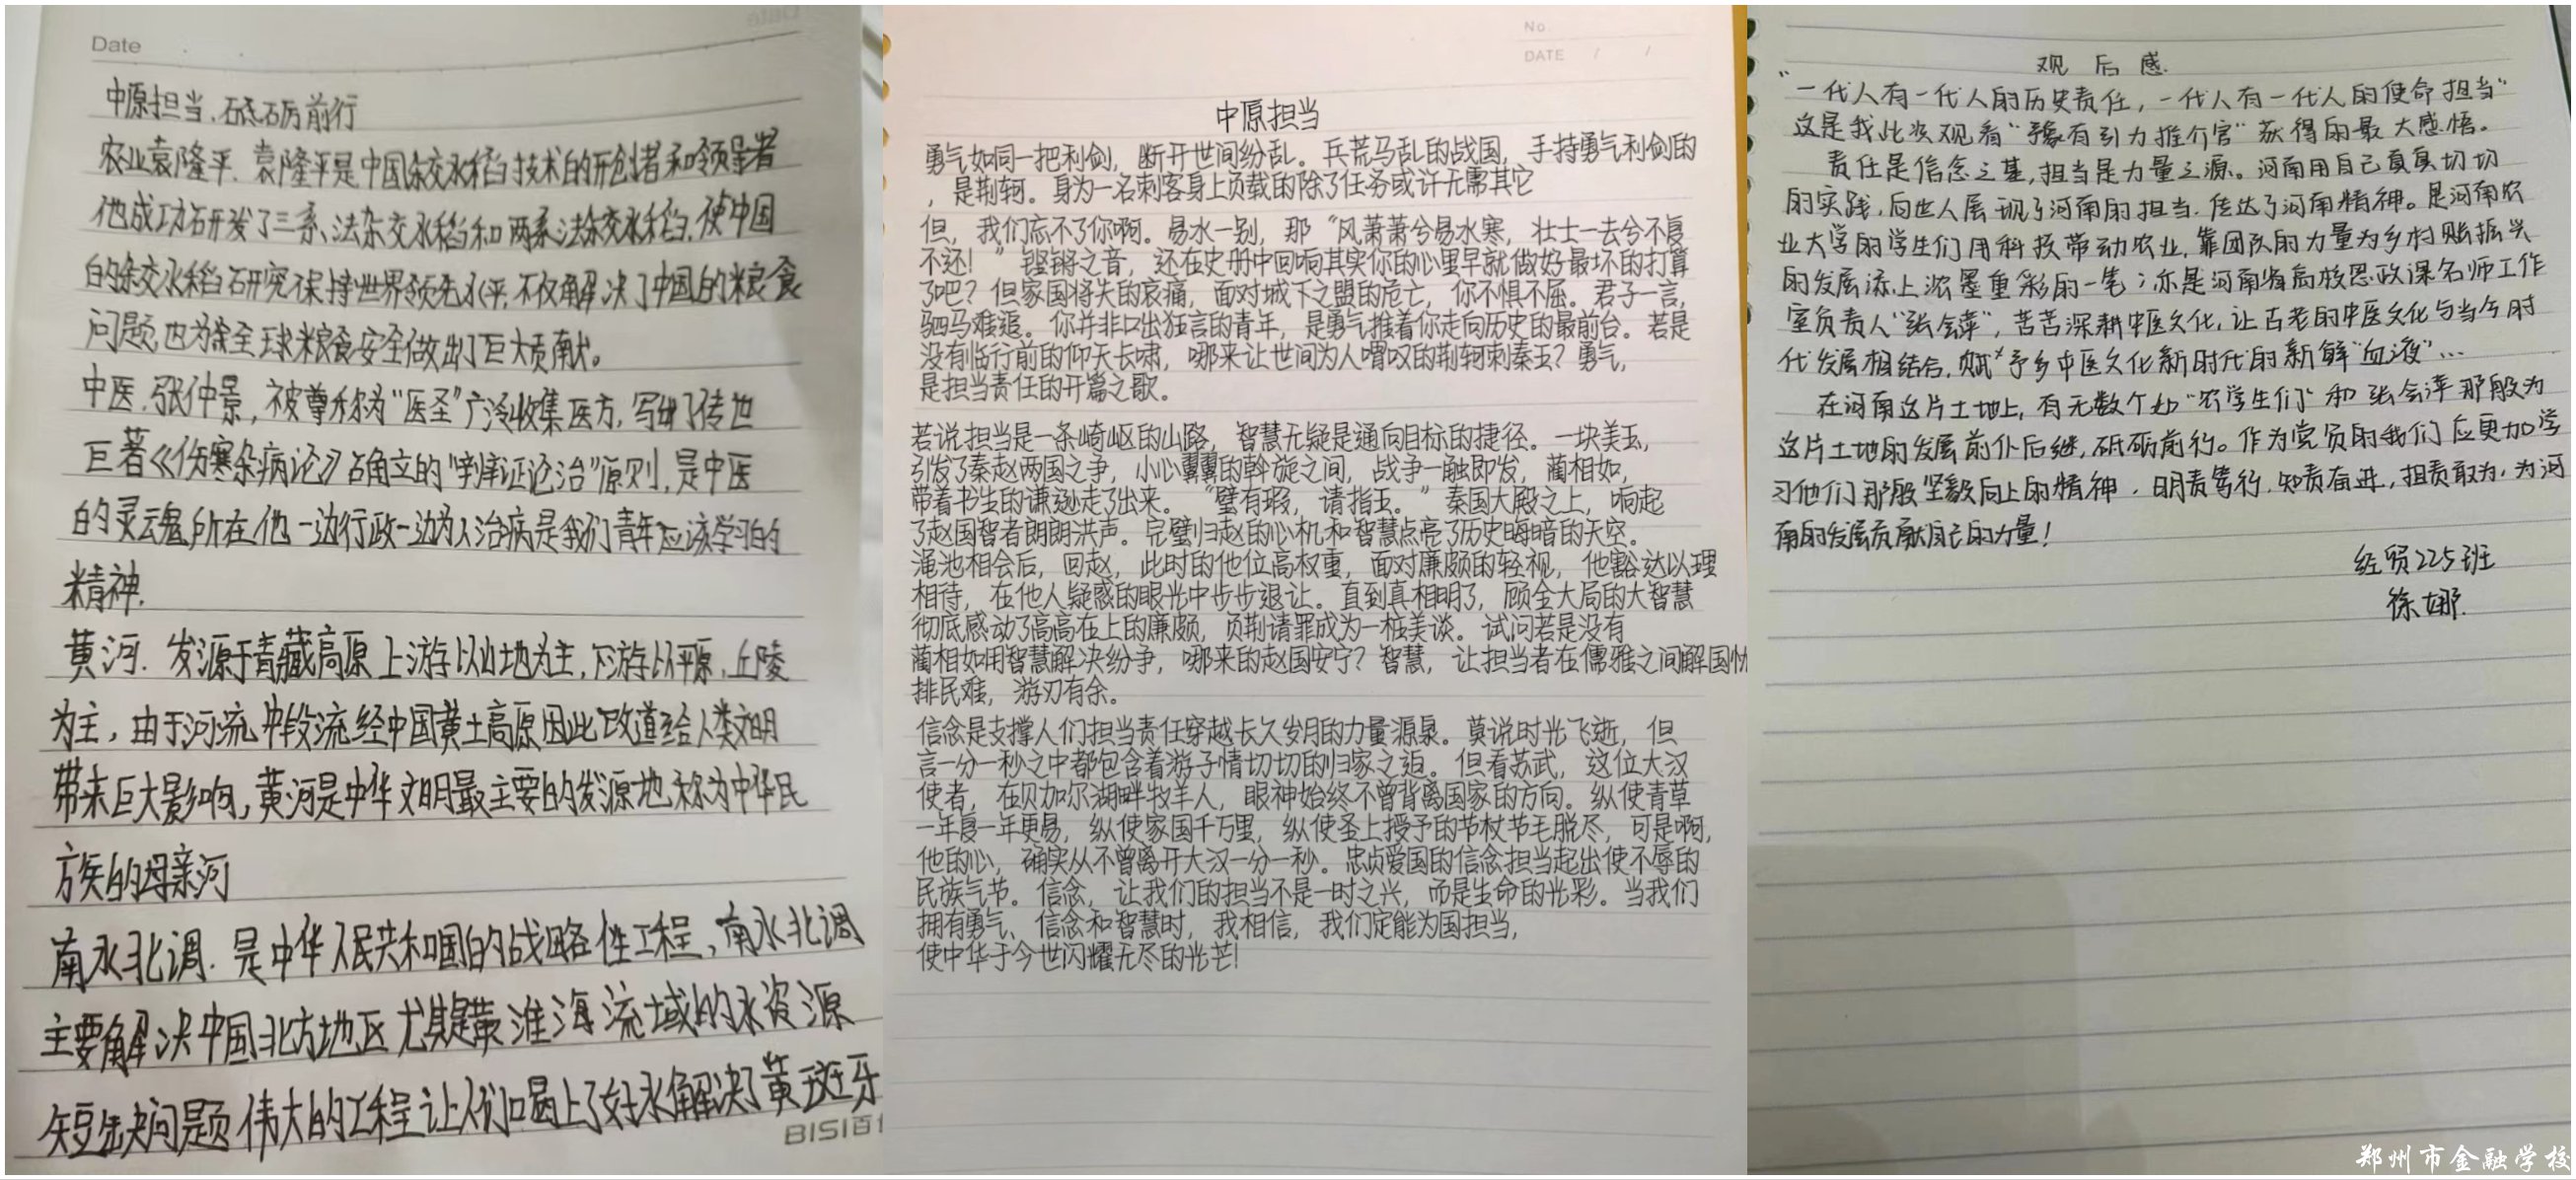 Date
中原担当,砥砺前行
农业袁隆平.袁隆平是中国杂交水稻技术的开创者和领导者
他成功研发了三系、法杂交水稻和两系法杂交水稻,使中国
的杂交水稻研究保持世界领先水平,不仅解决了中国的粮食
问题也为全球粮食安全做出了巨大贡献。
中医.张仲景,被尊称为“医圣”广泛收集医方,写出了传世
巨著《伤寒杂病论》确立的“辨证论治”原则,是中医
的灵魂所在他一边行政一边为人治病是我们青年应该学习的
精神.
黄河.发源于青藏高原上游以山地为主,下游以平原,丘陵
为主,由于河流中段流经中国黄土高原因此改道给人类文明
带来巨大影响,黄河是中华文明最主要的发源地称为中华民
族的母亲河
南水北调.是中华人民共和国的战略性工程,南水北调
主要解决中国北方地区尤其是黄淮海流域的水资源
短缺问题伟大的工程让人们喝上了好水解决了黄斑牙
BISI百
No
DATE / /
中原担当
勇气如同一把利剑,断开世间纷乱。兵荒马乱的战国,手持勇气利剑的
,是荆轲。身为一名刺客身上负载的除了任务或许无需其它
但,我们忘不了你啊。易水一别,那“风萧萧兮易水寒,壮士一去兮不复
不还!”铿锵之音,还在史册中回响其实你的心里早就做好最坏的打算
了吧?但家国将失的哀痛,面对城下之盟的危亡,你不惧不屈。君子一言,
驷马难追。你并非口出狂言的青年,是勇气推着你走向历史的最前台。若是
没有临行前的仰天长啸,哪来让世间为人喟叹的荆轲刺秦王?勇气,
是担当责任的开篇之歌。
若说担当是一条崎岖的山路,智慧无疑是通向目标的捷径。一块美玉,
引发了秦赵两国之争,小心翼翼的斡旋之间,战争一触即发,蔺相如,
带着书生的谦逊走了出来。“璧有瑕,请指玉。”秦国大殿之上,响起
了赵国智者朗朗洪声。完璧归赵的心机和智慧点亮了历史晦暗的天空。
渑池相会后,回赵,此时的他位高权重,面对廉颇的轻视,他豁达以理
相待,在他人疑惑的眼光中步步退让。直到真相明了,顾全大局的大智慧
彻底感动了高高在上的廉颇,负荆请罪成为一桩美谈。试问若是没有
蔺相如用智慧解决纷争,哪来的赵国安宁?智慧,让担当者在儒雅之间解国忧
排民难,游刃有余。
信念是支撑人们担当责任穿越长久岁月的力量源泉。莫说时光飞逝,但
言一分一秒之中都包含着游子情切切的归家之迫。但看苏武,这位大汉
使者,在贝加尔湖畔牧羊人,眼神始终不曾背离国家的方向。纵使青草
一年复一年更易,纵使家国千万里,纵使圣上授予的节杖节毛脱尽,可是啊,
他的心,确实从不曾离开大汉一分一秒。忠贞爱国的信念担当起出使不辱的
民族气节。信念,让我们的担当不是一时之兴,而是生命的光彩。当我们
拥有勇气、信念和智慧时,我相信,我们定能为国担当,
使中华于今世闪耀无尽的光芒!
观后感
“一代人有一代人的历史责任,一代人有一代人的使命担当”
这是我此次观看“豫有引力推介官”获得的最大感悟。
责任是信念之基,担当是力量之源。河南用自己真真切切
的实践,向世人展现了河南的担当,传达了河南精神。是河南农
业大学的学生们用科技带动农业,靠团队的力量为乡村账振兴
的发展添上浓墨重彩的一笔;亦是河南省高校思政课名师工作
室负责人“张会萍”,苦苦深耕中医文化,让古老的中医文化与当今时
代发展相结合,赋予乡中医文化新时代的新解“血液”...
在河南这片土地上,有无数个如“农学生们”和张会萍那般为
这片土地的发展前仆后继,砥砺前行。作为党员的我们应更加学
习他们那般坚毅向上的精神,明责笃行,知责奋进,担责敢为,为河
南的发展贡献自己的力量!
经贸225班
徐娜.
郑州市金融学校